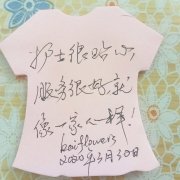 护士很贴心
服务很好就
像一家人一样！
kaiflowers
2020年3月30日